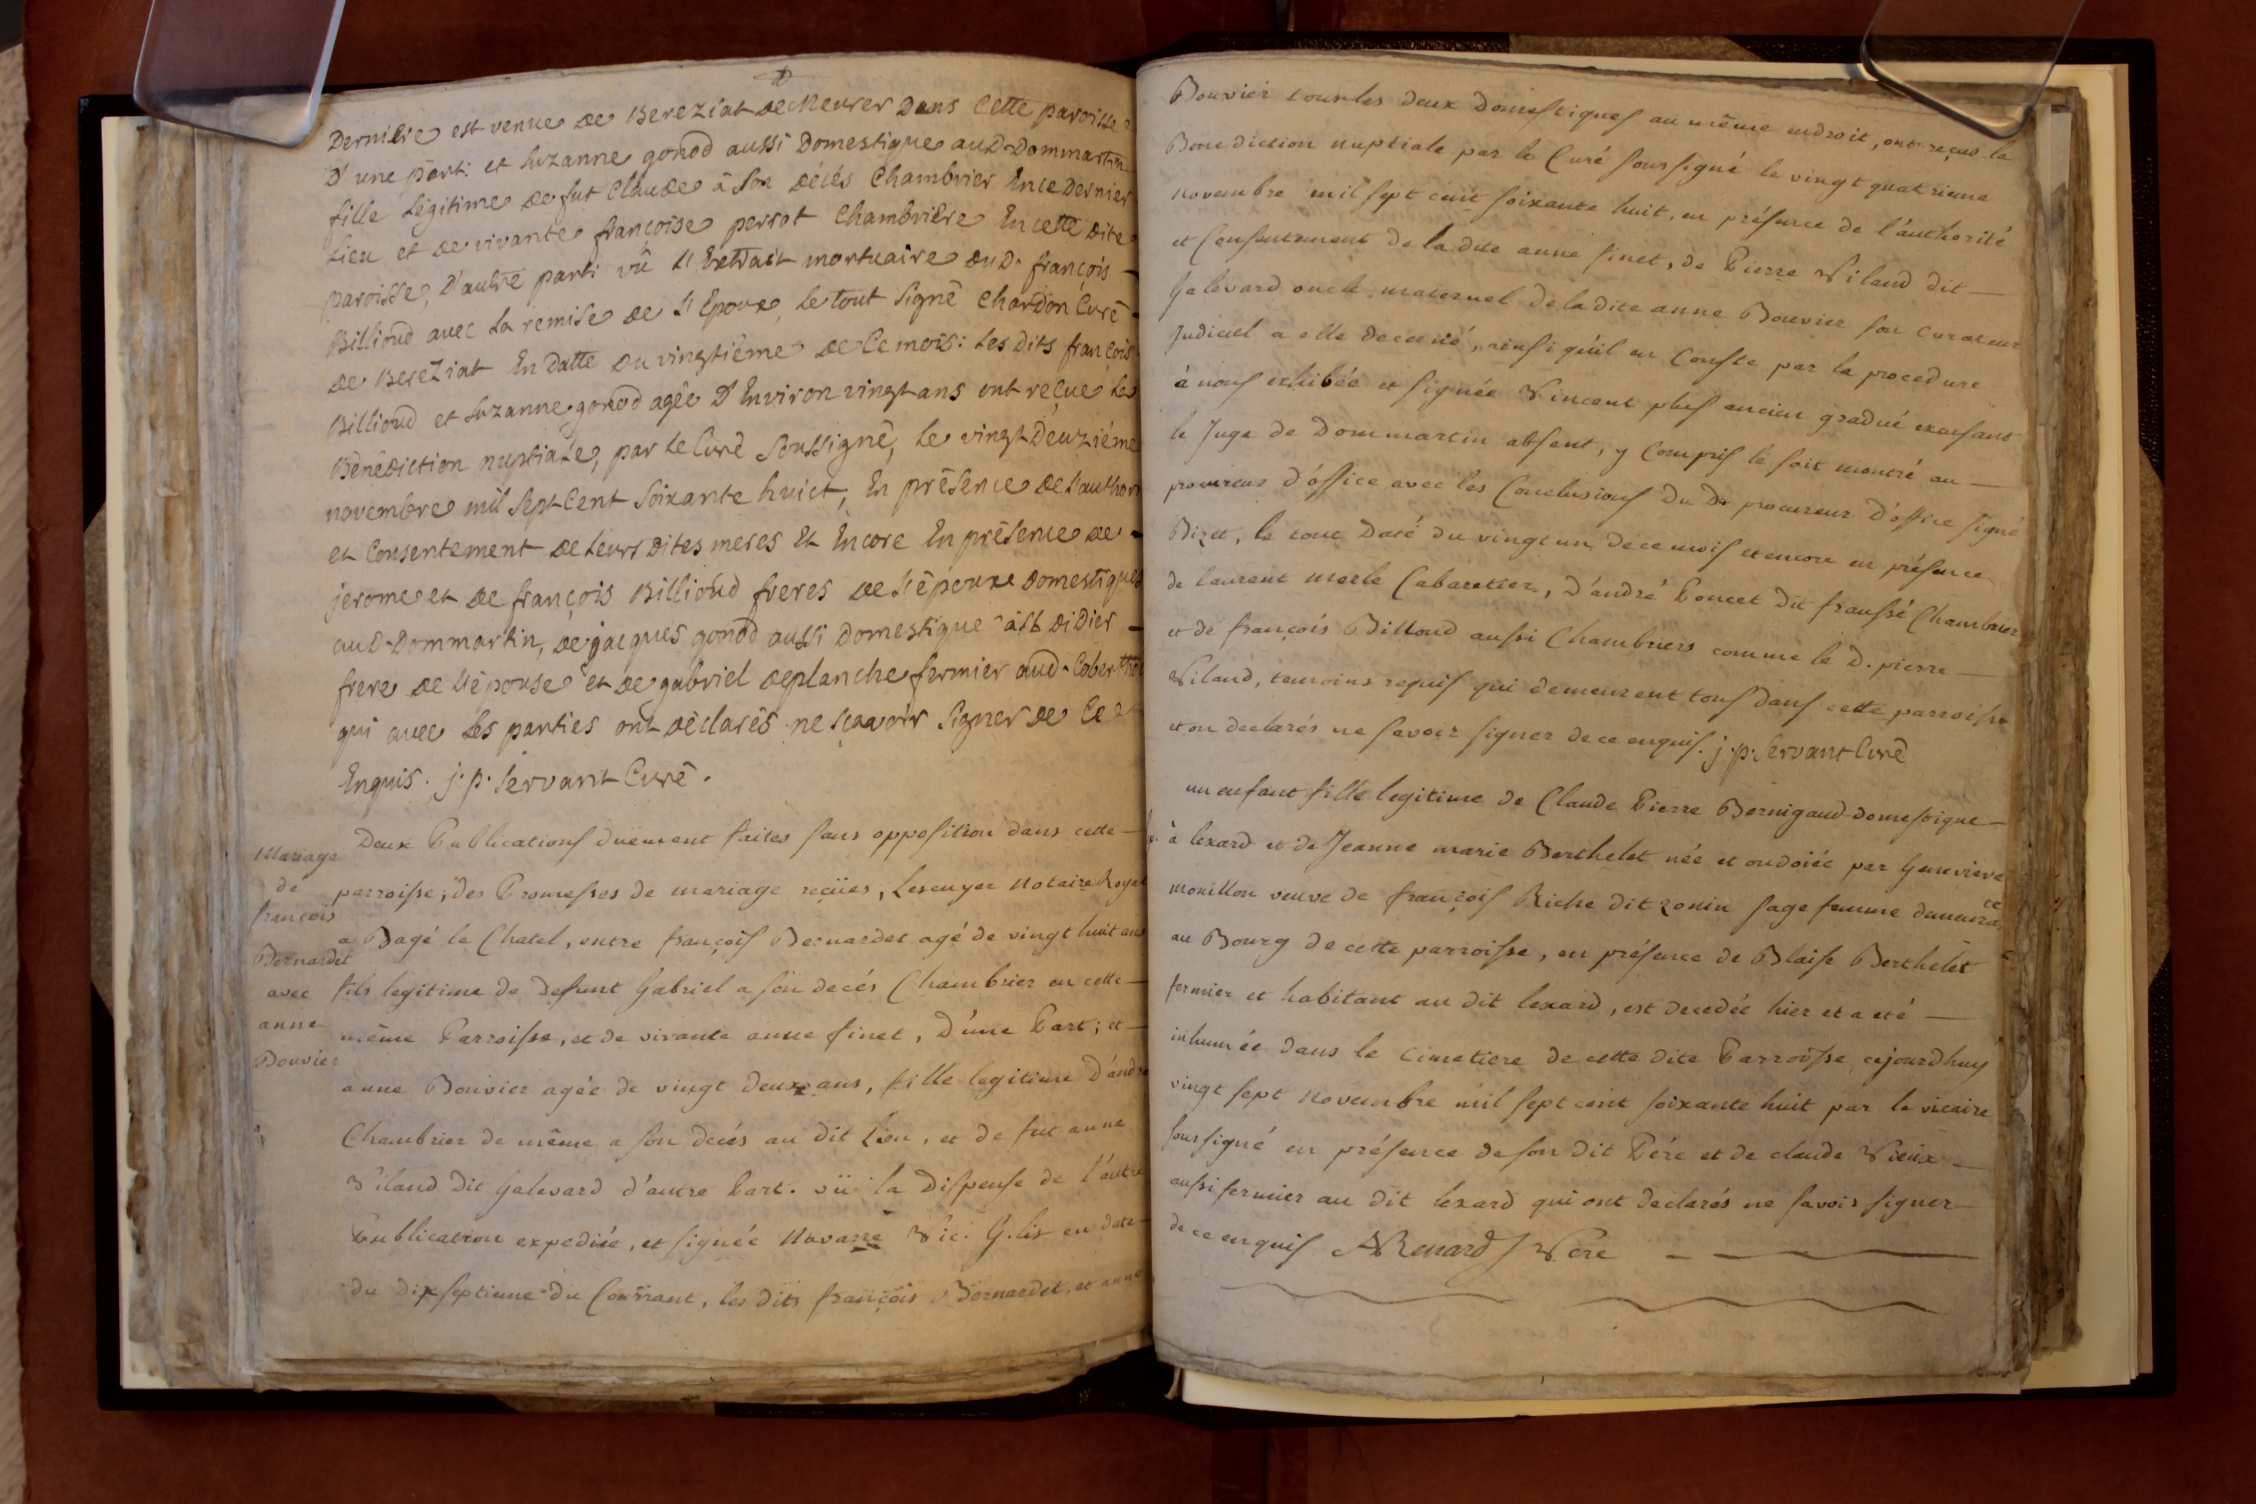 Derniere est venue de Bereziat demeurer dans Cette paroisse
D'une part: et Suzanne gonod aussi Domestique aud. Dommartin
fille Légitime de fut Claude â Son décés Chambrier En ce dernier
Lieu et de vivante françoise perrot Chambriere En cette dite
paroisse, D'autre part: vû l'Extrait mortuaire dud. françois —
Billioud avec La remise de l'Epoux, Le tout Signé Chardon Curé
de Bereziat En datte du vingtième de Ce mois: Les dits françois
Billioud et Suzanne gonod agée D'Environ vingt ans ont reçue Les
Bénédiction nuptiale, par Le Curé Soussigné, Le vingt Deuziéme
novembre mil Sept Cent Soixante huict, En présence de L'author
et Consentement de Leurs dites meres Et Encore En présence de
jérome et de françois Billioud freres de l'époux Domestiques
aud. Dommartin, de jacques gonod aussi Domestique â st. Didier
frere de l'épouse et de gabriel deplanche fermier aud.
qui avec Les parties ont déclarés ne Sçavoir Signer de Ce
Enquis. j. p. Servant Curé.
Mariage
de
françois
Bernardet
avec
anne
Bouvier
Deux Publications duëment faites sans opposition dans cette —
parroisse, des Promesses de mariage reçües, Lescuyer Notaire Royal
a Bagé le Chatel, entre françois Bernardet agé de vingt huit ans
fils legitime de defunt Gabriel a son decés Chambrier en cette —
même Parroisse, et de vivante anne finet, D'une Part; et —
anne Bouvier agée de vingt deux ans, fille legitime D'andre
Chambrier de même a son decés au dit Lieu, et de fut anne
Viland dit Galevard d'autre Part. vü la Dispense de l'autre
Publication expediée, et signée Navarre Vic. G.
du dix septieme du Courrant, les dits françois Bernardet, et anne
Bouvier tour les deux domestiques au même endroit, ont reçus la
Benediction nuptiale par le Curé soussigné le vingt quatrieme
novembre mil sept cent soixante huit, en présence de l'authorité
et Consentement de la dite anne finet, de Pierre Viland dit —
Galevard oncle maternel de la dite anne Bouvier son curateur
Judiciel a elle decerné, ainsi qu'il en Conste par la procedure
à nous exhibée et signée Vincent plus ancien gradué exersant
le Juge de Dommartin absent, y Compris le soit montré au —
procureur d'office avec les Conclusions du Dt procureur d'office signé
Bizet, le tout Daté du vingt un de ce mois et encore en présence
de laurent merle Cabaretier, d'andré Poncet dit fraussé Chambrier
et de françois Billoud aussi Chambriers comme le D. pierre —
Viland, temoins requis qui demeurent tous dans cette parroisse
et on declarés ne savoir signer de ce enquis. j. p. Servant Curé
un enfant fille legitime de Claude Pierre Bernigaud domestique —
à lexard et de Jeanne marie Berthelet née et ondoiée par Genevieve
monillon veuve de françois Riche dit zonin sage femme demeurante
au Bourg de cette parroisse, en présence de Blaise Berthelet
fermier et habitant au dit lexard, est decedée hier et a eté —
inhumée dans le cimetiere de cette dite Parroisse cejourdhuy
vingt sept novembre mil sept cent soixante huit par le vicaire
soussigné en présence de son dit Pére et de claude Vieux —
aussi fermier au dit lexard qui ont declarés ne savoir signer
de ce enquis Renard Vere